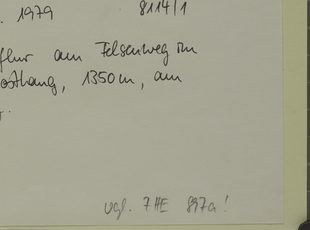 . 1979 8114/1
flur am Felsenweg im
osthang, 1350 m, am
vgl. 7HE 897a!